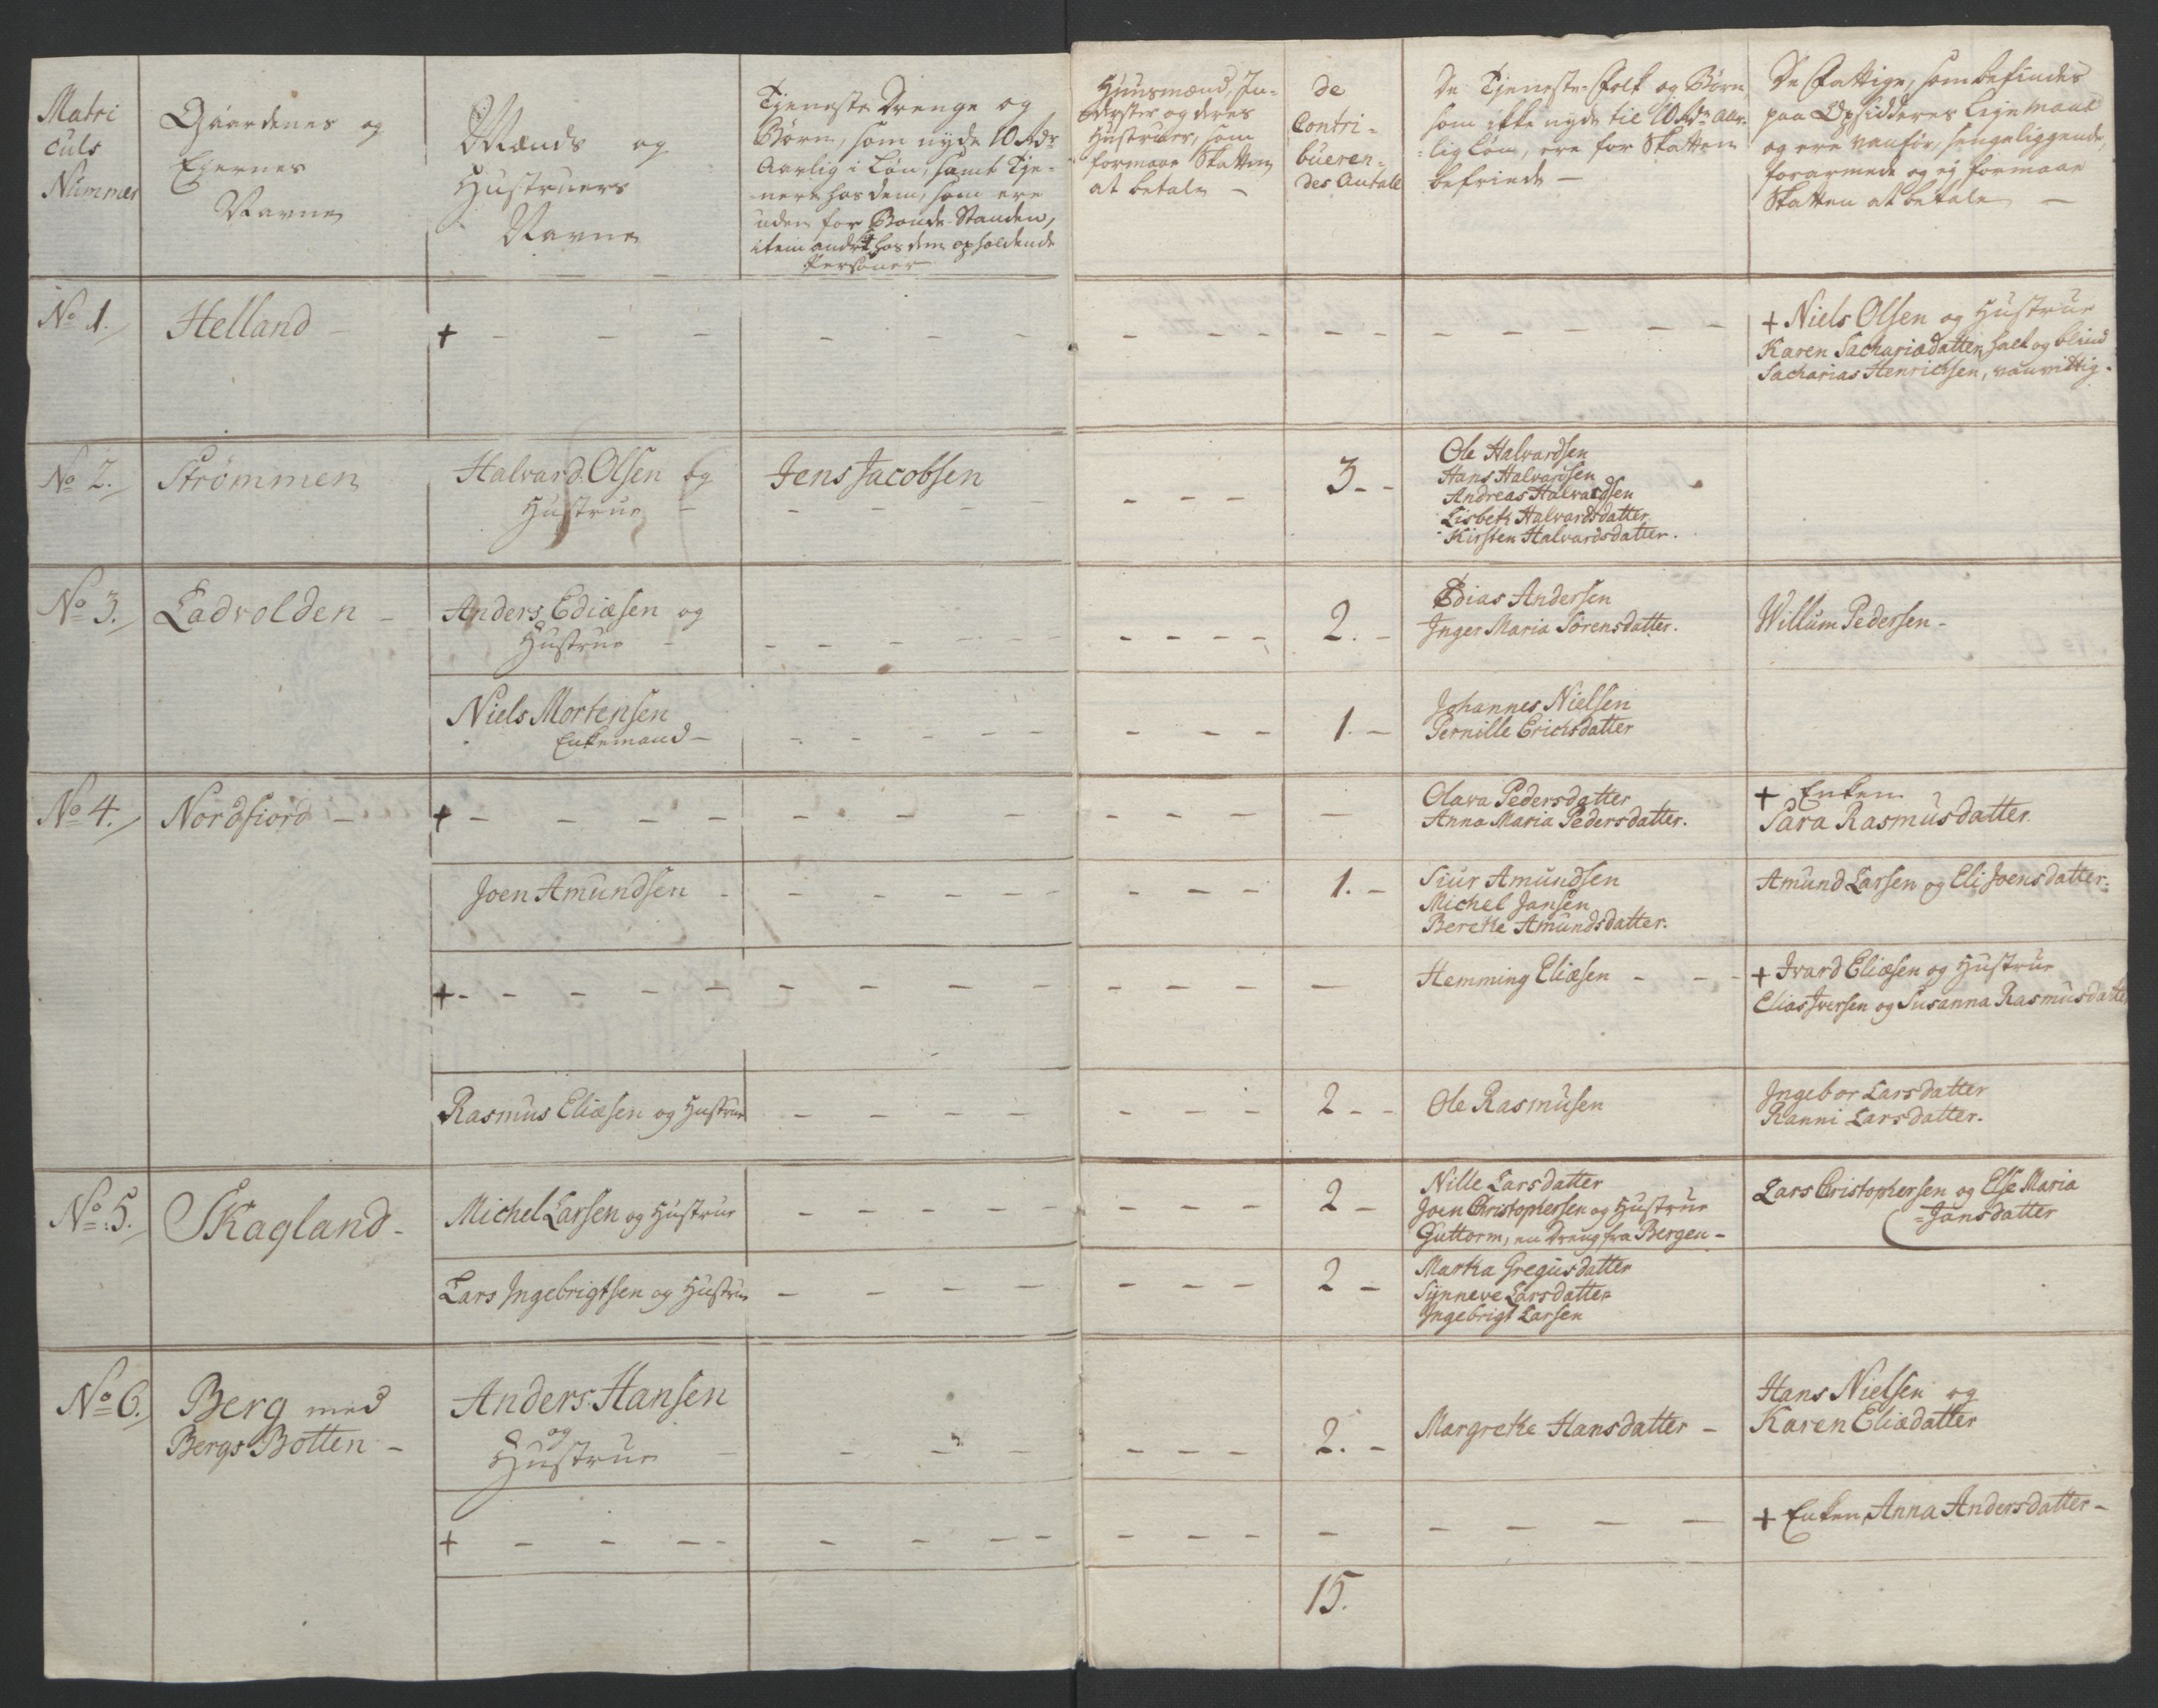 Matri
culs
Nummer
Gaardenes og
Eiernes
Navne
Mænds og
Hustruers
Navne
Tjeneste Drenge og
Børn, som nyde 10 Rdr
Aarlig i Løn, samt Tje-
nere hos dem, som ere
uden for Bonde-Standen,
item andre hos dem opholdende
Personer
Huusmænd, In-
derster og deres
Hustruer, som
formaae Skatten
at betale -
de
Contri-
bueren-
des Antall
De Tjeneste-Folk og Børn,
som ikke nyde til 10 Rdr Aar-
lig Løn, ere for Skatten
befriede -
De Fattige, som befindes
paa Opsidderes Ligemaal
og ere vanføre, sengeliggende,
forarmede og ej formaae
Skatten at betale -
No 1. Helland - + - - - - - - - - - - - - - - - - + Niels Olsen og Hustrue
Karen Sachariædatter, halt og blind
Sacharias Henrichsen, vanvittig.
No 2. Strømmen Halvard Olsen og Jens Jacobsen
Hustrue - - - - - - - 3 - -
Ole Halvardsen
Hans Halvardsen
Andreas Halvardsen
Lisbeth Halvardsdatter
Kirsten Halvardsdatter.
No 3. Ladvolden - Anders Ediæsen og
Hustrue - - - - - - - - - - 2. -
Edias Andersen
Inger Maria Sørensdatter.
Willum Pedersen -
Niels Mortensen
Enkemand - - - - - - - - - 1. -
Johannes Nielsen
Pernille Erichsdatter
No 4. Nordfiord - + - - - - - - - - - - - -
Olava Pedersdatter
Anna Maria Pedersdatter.
+ Enken
Sara Rasmusdatter
Joen Amundsen - - - - - - - - - 1. -
Siur Amundsen
Michel Jansen
Berethe Amundsdatter.
Amund Larsen og Eli Joensdatter.
+ - - - - - - - - - - - - - -
Hemming Eliæsen - - -
+ Ivard Eliæsen og Hustrue
Elias Iversen og Susanna Rasmusdatter
Rasmus Eliæsen og Hustrue - - - - - - - 2 - -
Ole Rasmusen
Ingebor Larsdatter
Ranni Larsdatter.
No. 5. Skagland - Michel Larsen og Hustrue - - - - - - - - - 2 -
Nille Larsdatter
Joen Christophersen og Hustrue
Guttorm, en Dreng fra Bergen -
Lars Christophersen og Else Maria
= Jansdatter
Lars Ingebrigtsen og Hustrue - - - - - - - 2 -
Martha Gregusdatter
Synneve Larsdatter
Ingebrigt Larsen
No 6. Berg med
Bergs Botten -
Anders Hansen
og
Hustrue - - - - - - - 2. -
Margrethe Hansdatter -
Hans Nielsen og
Karen Eliædatter
+ - - - - - - - - - - - - - - - + Enken, Anna Andersdatter -
15.